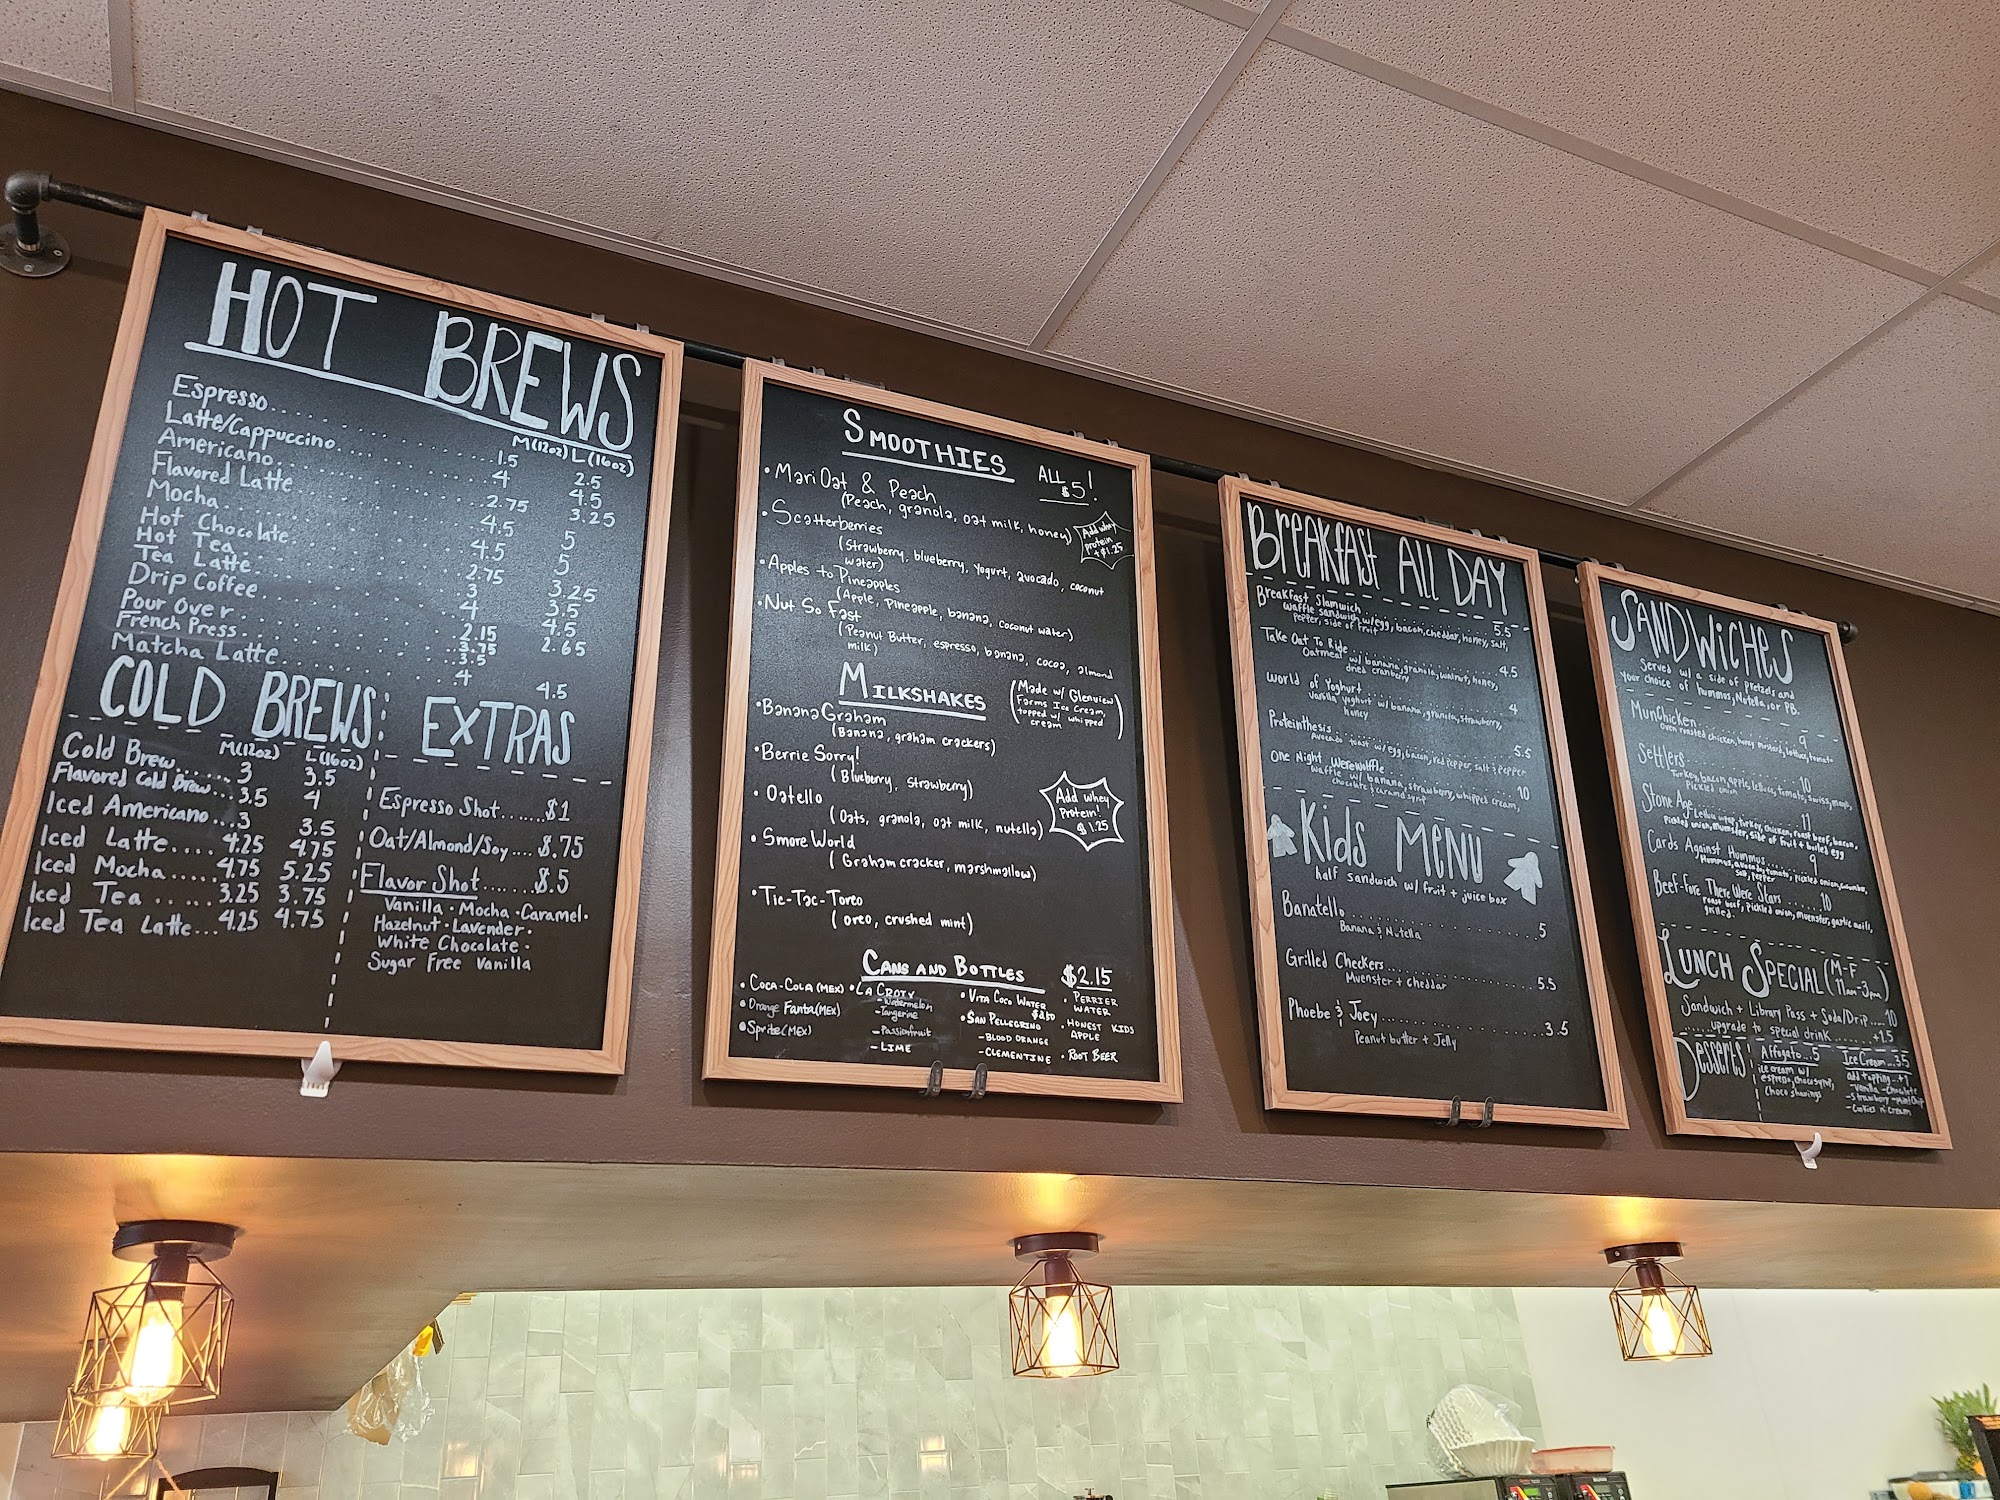 HOT BREWS
M(12oz) L(16oz)
Espresso 1.5 2.5
Latte/Cappuccino 4 4.5
Americano 2.75 3.25
Flavored Latte 4.5 5
Mocha 4.5 5
Hot Chocolate 2.75 3.25
Hot Tea 3 3.5
Tea Latte 4 4.5
Drip Coffee 2.15 2.65
Pour Over 3.75
French Press 3.5
Matcha Latte 4 4.5
COLD BREWS
M(12oz) L(16oz)
Cold Brew 3 3.5
Flavored Cold Brew 3.5 4
Iced Americano 3 3.5
Iced Latte 4.25 4.75
Iced Mocha 4.75 5.25
Iced Tea 3.25 3.75
Iced Tea Latte 4.25 4.75
EXTRAS
Espresso Shot $1
Oat/Almond/Soy $.75
Flavor Shot $.5
Vanilla · Mocha · Caramel ·
Hazelnut · Lavender ·
White Chocolate ·
Sugar Free Vanilla
SMOOTHIES ALL $5!
• Mari Oat & Peach
(Peach, granola, oat milk, honey)
Add whey protein + $1.25
• Scatterberries
(Strawberry, blueberry, yogurt, avocado, coconut
water)
• Apples to Pineapples
(Apple, pineapple, banana, coconut water)
• Nut So Fast
(Peanut Butter, espresso, banana, cocoa, almond
milk)
MILKSHAKES
(Made w/ Glenview
Farms Ice Cream,
topped w/ whipped
cream)
• Banana Graham
(Banana, graham crackers)
• Berrie Sorry!
(Blueberry, strawberry)
• Oatello
(Oats, granola, oat milk, nutella)
Add whey
Protein!
$1.25
• Smore World
(Graham cracker, marshmallow)
• Tic-Tac-Toreo
(oreo, crushed mint)
CANS AND BOTTLES $2.15
• COCA-COLA (MEX)
• Orange Fanta (MEX)
• Sprite (MEX)
• LA CROIX
- Watermelon
- Tangerine
- Passionfruit
- LIME
• VITA COCO WATER
• SAN PELLEGRINO
- BLOOD ORANGE
- CLEMENTINE
• PERRIER
WATER
• HONEST KIDS
APPLE
• ROOT BEER
BREAKFAST ALL DAY
Breakfast Slamwich 5.5
waffle sandwich w/egg, bacon, cheddar, honey, salt,
pepper, side of fruit
Take Oat To Ride 4.5
Oatmeal w/ banana, granola, walnut, honey,
dried cranberry
World of Yoghurt 4
Vanilla yoghurt w/ banana, granola, strawberry,
honey
Proteinthesis 5.5
Avocado toast w/ egg, bacon, red pepper, salt & pepper
One Night Werewaffle 10
Waffle w/ banana, strawberry, whipped cream,
chocolate & caramel syrup
Kids MENU
half sandwich w/ fruit + juice box
Banatello 5
Banana & Nutella
Grilled Checkers 5.5
Muenster + cheddar
Phoebe & Joey 3.5
Peanut butter + Jelly
SANDWICHES
Served w/ a side of pretzels and
your choice of hummus, Nutella, or PB.
Munchicken 9
Oven roasted chicken, honey mustard, lettuce, tomato
Settlers 10
Turkey, bacon, apple, lettuce, tomato, swiss, mayo,
pickled onion
Stone Age 11
Lettuce wrap, turkey, chicken, roast beef, bacon,
pickled onion, muenster, side of fruit + boiled egg
Cards Against Hummus 9
Hummus, avocado, tomato, pickled onion, cucumber,
salt, pepper
Beef-fore There Were Stars 10
roast beef, pickled onion, muenster, garlic aioli,
grilled
LUNCH SPECIAL (M-F
11am-3pm)
Sandwich + Library Pass + Soda/Drip 10
upgrade to special drink +1.5
DESSERTS
Affogato 5
ice cream w/
espresso, choco syrup,
choco shavings
Ice Cream 3.5
add topping +1
- Vanilla - Chocolate
- Strawberry - Mint Chip
- Cookies n' Cream